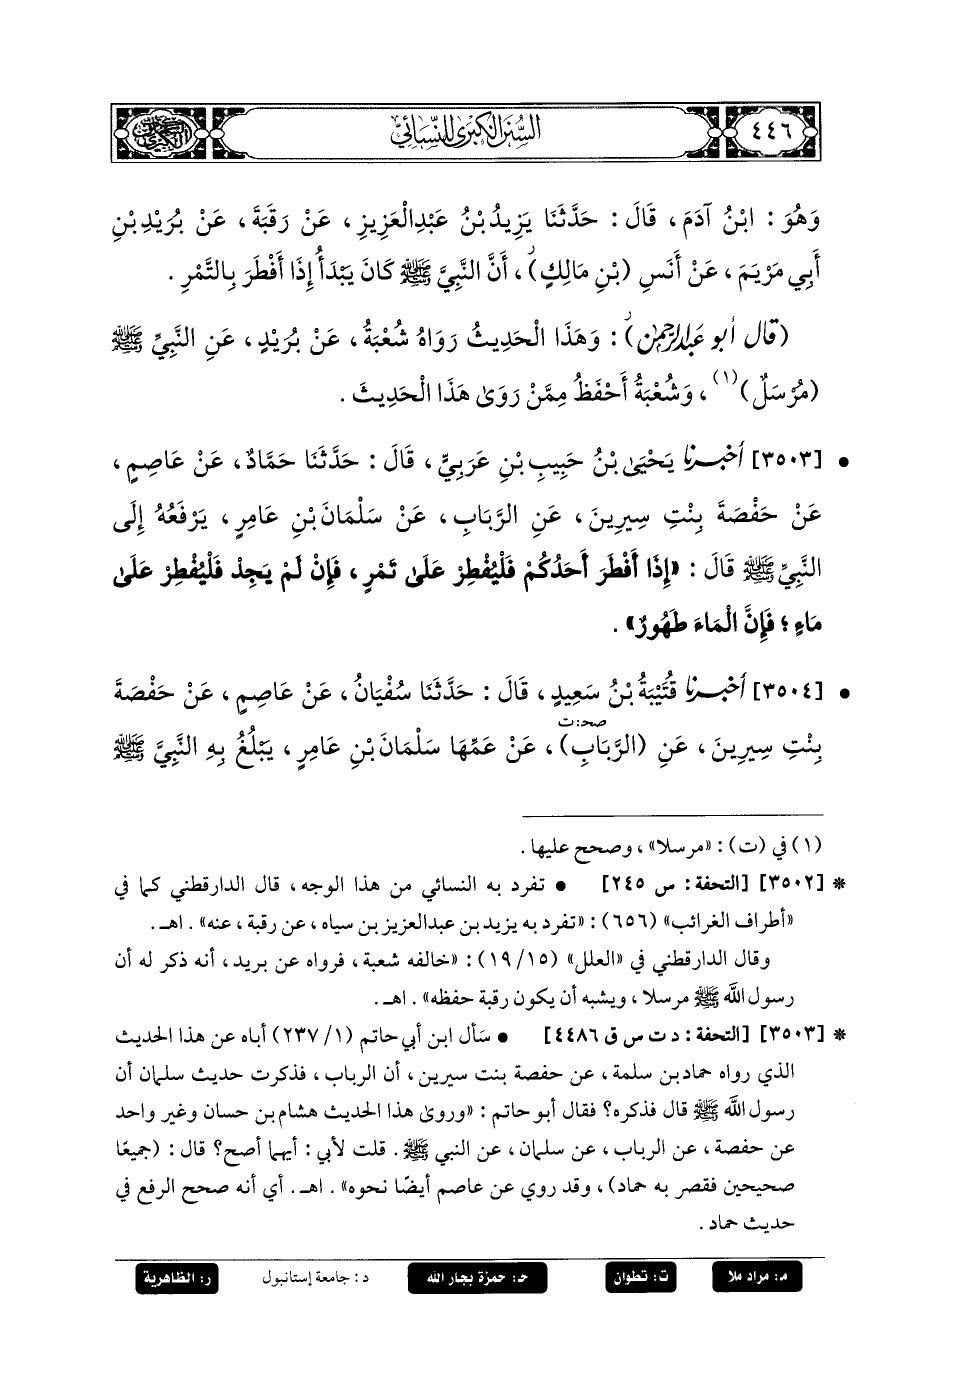 ٤٤٦
السُّنَنُ الْكُبْرَى لِلنَّسَائِيِّ
وَهُوَ : ابْنُ آدَمَ ، قَالَ : حَدَّثَنَا يَزِيدُ بْنُ عَبْدِالْعَزِيزِ ، عَنْ رَقَبَةَ ، عَنْ بُرَيْدِ بْنِ
أَبِي مَرْيَمَ ، عَنْ أَنَسِ (بْنِ مَالِكٍ)ر ، أَنَّ النَّبِيَّ ﷺ كَانَ يَبْدَأُ إِذَا أَفْطَرَ بِالتَّمْرِ .
(قال أبو عبدالرحمن)ر : وَهَذَا الْحَدِيثُ رَوَاهُ شُعْبَةُ ، عَنْ بُرَيْدٍ ، عَنِ النَّبِيِّ ﷺ
(مُرْسَلٌ)(١) ، وَشُعْبَةُ أَحْفَظُ مِمَّنْ رَوَىٰ هَذَا الْحَدِيثَ .
• [٣٥٠٣] أخبرنا يَحْيَىٰ بْنُ حَبِيبِ بْنِ عَرَبِيٍّ ، قَالَ : حَدَّثَنَا حَمَّادٌ ، عَنْ عَاصِمٍ ،
عَنْ حَفْصَةَ بِنْتِ سِيرِينَ ، عَنِ الرَّبَابِ ، عَنْ سَلْمَانَ بْنِ عَامِرٍ ، يَرْفَعُهُ إِلَى
النَّبِيِّ ﷺ قَالَ : «إِذَا أَفْطَرَ أَحَدُكُمْ فَلْيُفْطِرْ عَلَىٰ تَمْرٍ ، فَإِنْ لَمْ يَجِدْ فَلْيُفْطِرْ عَلَىٰ
مَاءٍ ؛ فَإِنَّ الْمَاءَ طَهُورٌ» .
• [٣٥٠٤] أخبرنا قُتَيْبَةُ بْنُ سَعِيدٍ ، قَالَ : حَدَّثَنَا سُفْيَانُ ، عَنْ عَاصِمٍ ، عَنْ حَفْصَةَ
صحـ: ت
بِنْتِ سِيرِينَ ، عَنِ (الرَّبَابِ) ، عَنْ عَمِّهَا سَلْمَانَ بْنِ عَامِرٍ ، يَبْلُغُ بِهِ النَّبِيَّ ﷺ
(١) في (ت) : «مرسلا» ، وصحح عليها .
* [٣٥٠٢] [التحفة : س ٢٤٥] • تفرد به النسائي من هذا الوجه ، قال الدارقطني كما في
«أطراف الغرائب» (٦٥٦) : «تفرد به يزيد بن عبدالعزيز بن سياه ، عن رقبة ، عنه» . اهـ .
وقال الدارقطني في «العلل» (١٩/١٥) : «خالفه شعبة ، فرواه عن بريد ، أنه ذكر له أن
رسول الله ﷺ مرسلا ، ويشبه أن يكون رقبة حفظه» . اهـ .
* [٣٥٠٣] [التحفة : د ت س ق ٤٤٨٦] • سأل ابن أبي حاتم (٢٣٧/١) أباه عن هذا الحديث
الذي رواه حماد بن سلمة ، عن حفصة بنت سيرين ، أن الرباب ، فذكرت حديث سلمان أن
رسول الله ﷺ قال فذكره؟ فقال أبو حاتم : «وروىٰ هذا الحديث هشام بن حسان وغير واحد
عن حفصة ، عن الرباب ، عن سلمان ، عن النبي ﷺ . قلت لأبي : أيهما أصح؟ قال : (جميعًا
صحيحين فقصر به حماد) ، وقد روي عن عاصم أيضًا نحوه» . اهـ . أي أنه صحح الرفع في
حديث حماد .
م: مراد ملا ت: تطوان حـ: حمزة بجار الله د: جامعة إستانبول ر: الظاهرية